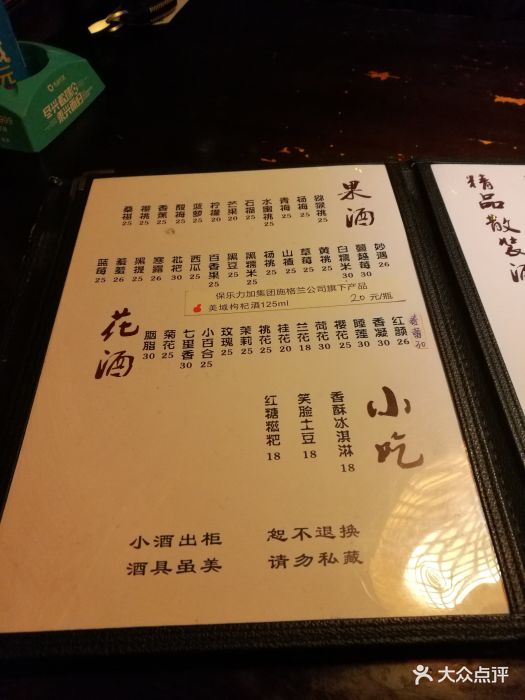 果酒
猕猴桃 25
杨梅 25
青梅 25
水蜜桃 25
石榴 25
芒果 25
柠檬 25
蓝莓
酸梅 25
香蕉 25
樱桃 25
桑椹 25
妙遇 26
蔓越莓 30
白糯米 30
黄桃 25
草莓 25
山楂 25
杨桃 25
黑糯米 25
黑豆 25
百香果 25
西瓜 25
枇杷 30
寒露 30
黑提 26
羞羞 26
蓝莓 25
保乐力加集团施格兰公司旗下产品
美域枸杞酒125ml 20元/瓶
花酒
红颜 26
香凝 30
睡莲 30
樱花 25
荷花 30
兰花 18
桂花 20
桃花 25
茉莉 25
玫瑰 25
小百合 25
七里香 30
菊花 25
胭脂 30
小吃
香酥冰淇淋 18
笑脸土豆 18
红糖糍粑 18
小酒出柜 恕不退换
酒具虽美 请勿私藏
精品散装酒
大众点评